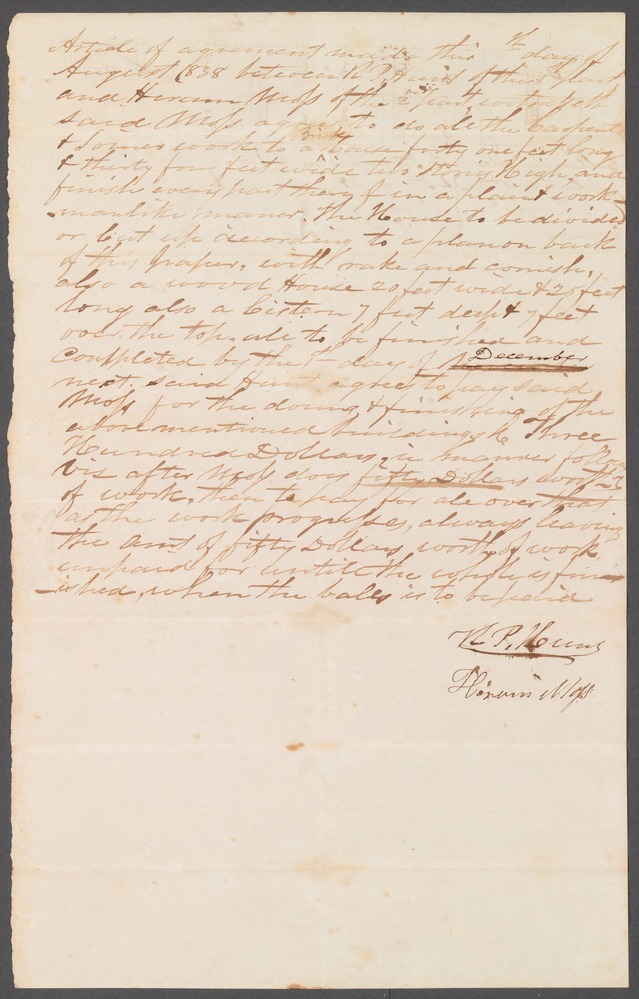 Article of agreement made this th day of
August 1838 between R P Hunt of the 1st part
and Hiram Moss of the 2nd part, witnesseth
said Moss agrees to do all the Carpenter
& Joiner work to a brick House forty one feet long
& thirty four feet wide two Storys High, and
finish every part thereof in a plain & work
-manlike manor, the House to be divided
or cut up according to a plan on back
of this paper, with rake and cornish,
also a wood House 20 feet wide & 20 feet
long also a Cistern 7 feet deep & 7 feet
over the top, all to be finished and
Compleated by the 1st day of December
next. said Hunt agrees to pay said
Moss for the doing & finishing of the
above mentioned buildings Three
Hundred Dollars, in manner following
vis after Moss does fifty Dollars worth
of work, then to pay for all over that
as the work progresses, always leaving
the amt of fifty Dollars, worth of work
unpaid for until the whole is fin-
-ished, when the balce is to be paid
R P. Hunt
Hiram Moss